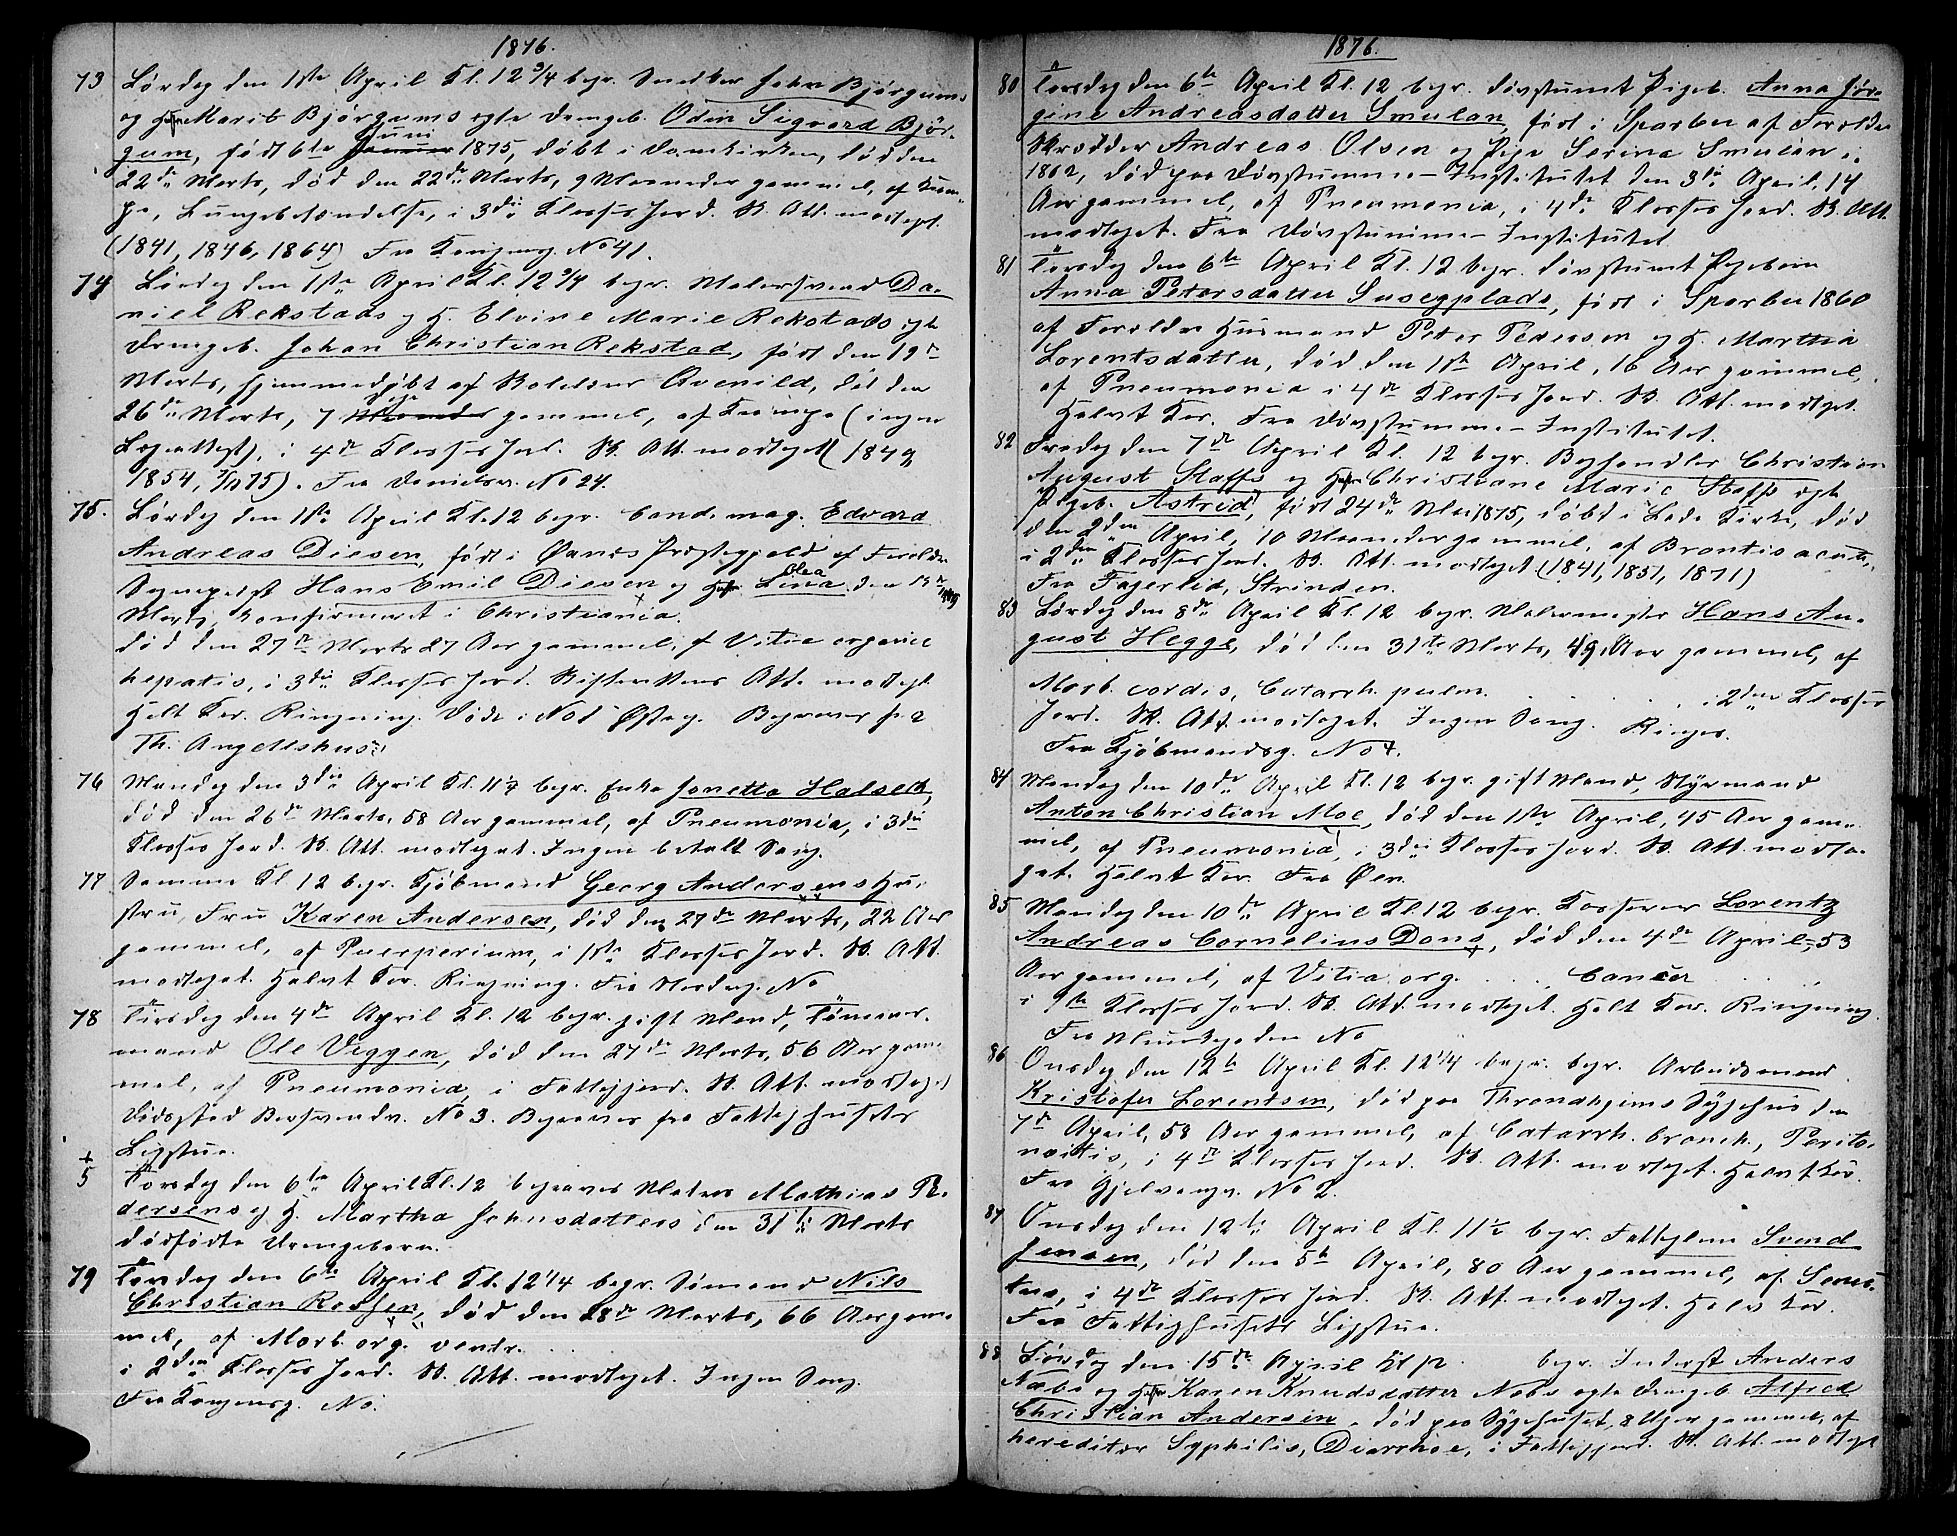 1876.
73 Lørdag den 1ste April Kl. 12 3/4 begr. Snedker John Bjørgums
og H. Marit Bjørgums ægte Drengeb. Odin Sigvard Bjør-
gum, født 6te Juni 1875, døbt i Domkirken, død den
22de Marts, død den 22de Marts, 9 Maaneder gammel, af Kram-
pe, Lungebetændelse, i 3die Klasses Jord. Sk. Att. modtaget.
(1841, 1846, 1864) Fra Kongensg. No 41.
74 Lørdag den 1ste April Kl. 12 3/4 begr. Malersvend Da-
niel Rekstads og H. Elvine Marie Rekstads ægte
Drengeb. Johan Christian Rekstad, født den 19de
Marts, hjemmedøbt af Avenild, død den
26de Marts, 7 Dage gammel, af Krampe (ingen
Lægeattest), i 4de Klasses Jord. Sk. Att. modtaget (1849,
1854, 75). Fra Danielsv. No 24.
75. Lørdag den 1ste April Kl. 12 begr. Cand. mag. Edvard
Andreas Diesen, født i Præstegjæld af Forældre
Hans Emil Diesen og Olea den
Marts, konfirmeret i Christiania.
død den 27de Marts 27 Aar gammel, af Vitia organic
hepatis, i 3die Klasses Jord. Skifterettens Att. modtaget.
Helt Kor. Ringning. Død i No 1 Østerg. Begraves fra
Th. Angells hus.
76 Mandag den 3die April Kl. 11 1/2 begr. Enke Janetta Halseth,
død den 26de Marts, 58 Aar gammel, af Pneumonia, i 3die
Klasses Jord. Sk. Att. modtaget. Ingen betalt Sang.
77 Samme Kl 12 begr. Kjøbmand Georg Andersens Hu-
stru, Fru Karen Andersen, død den 27de Marts, 22 Aar
gammel, af Puerperium, i 1ste Klasses Jord. Sk. Att.
modtaget. Halvt Kor. Ringning. Fra Nordreg. No
78 Tirsdag den 4de April Kl. 12 begr. gift Mand, Tømmer-
mand Ole Viggen, død den 27de Marts, 56 Aar gam-
mel, af Pneumonia, i Fattigjord. Sk. Att. modtaget
Dødssted No 3. Begraves fra Fattighusets
Ligstue.
+
5 Torsdag den 6te April Kl. 12 begraves Mathias Pe-
dersens og H. Martha Johnsdatters den 31te Marts
dødfødte Drengebarn.
79 Torsdag den 6te April Kl. 12 1/4 begr. Sømand Nils
Christian Rossen, død den 28de Marts, 66 Aar gam-
mel, af Morb. org. ventr.
i 2den Klasses Jord. Sk. Att. modtaget. Ingen Sang.
Fra Kongensg. No.
1876.
80 Torsdag den 6te April Kl. 12 begr. døvstumt Pigeb. Anna Jør-
gine Andreasdatter Smulan, født i Sparbu af Forældre
Skrædder Andreas Olsen og Pige Serina Smulan i
1862, død paa Døvstumme-Institutet den 3die April, 14
Aar gammel, af Pneumonia, i 4de Klasses Jord. Sk. Att.
modtaget. Fra Døvstumme-Institutet
81 Torsdag den 6te April Kl. 12 begr. døvstumt Pigebarn
Anna Petersdatter Susegplads, født i Sparbu 1860
af Forældre Husmand Peter Pedersen og H. Martha
Lorentsdatter, død den 1ste April, 16 Aar gammel,
af Pneumonia i 4de Klasses Jord. Sk. Att. modtaget.
Halvt Kor. Fra Døvstumme-Institutet.
82 Fredag den 7de April Kl. 12 begr. Boghandler Christian
August Staffs og H. Christiane Marie Staffs ægte
Pigeb. Astrid, født 24de Mai 1875, døbt i Lade Kirke, død
den 2den April, 10 Maaneder gammel, af Brontis acuta,
i 2den Klasses Jord. Sk. Att. modtaget (1841, 1851, 1871)
Fra Fagerlid, Strinden.
83 Lørdag den 8de April Kl. 12 begr. Malermester Hans Au-
gust Hegge, død den 31te Marts, 49 Aar gammel, af
Morb. cordis, Catarrh. pulm. i 2den Klasses
Jord. Sk. Att. modtaget. Ingen Sang. Ringes.
Fra Kjøbmandsg. No
84 Mandag den 10de April Kl. 12 begr. gift Mand, Styrmand
Anton Christian Moe, død den 1ste April, 45 Aar gam-
mel, af Pneumonia, i 3die Klasses Jord. Sk. Att. modta-
get. Halvt Kor. Fra Øen.
85 Mandag den 10de April Kl. 12 begr. Kasserer Lorentz
Andreas Cornelius Dons, død den 4de April, 53
Aar gammel, af Vitia org. Cancer
i 1ste Klasses Jord. Sk. Att. modtaget. Helt Kor. Ringning.
Fra Munkegaden No
86 Onsdag den 12te April Kl. 12 1/4 begr. begr. Arbeidsmand
Kristofer Lorentsen, død paa Throndhjems Sygehus den
7de April, 58 Aar gammel, af Catarrh. bronch., Perito-
nitis, i 4de Klasses Jord. Sk. Att. modtaget. Halvt Kor.
Fra Gjelvangv. No 2.
87 Onsdag den 12te April Kl. 11 1/2 begr. Fattiglem Svend
Jensen, død den 5te April, 80 Aar gammel, af Senec-
tus, i 4de Klasses Jord. Sk. Att. modtaget. Halv Kor.
Fra Fattighusets Ligstue.
88 Lørdag den 15de April Kl begr. Inderst Anders
Næbs og H. Karen Knudsdatter Næbs ægte Drengeb. Alfred
Christian Andersen, død paa Sygehuset, 8 Uger gammel, af
hereditær Syphilis, Diarrhoe, i Fattigjord. Sk. Att. modtaget